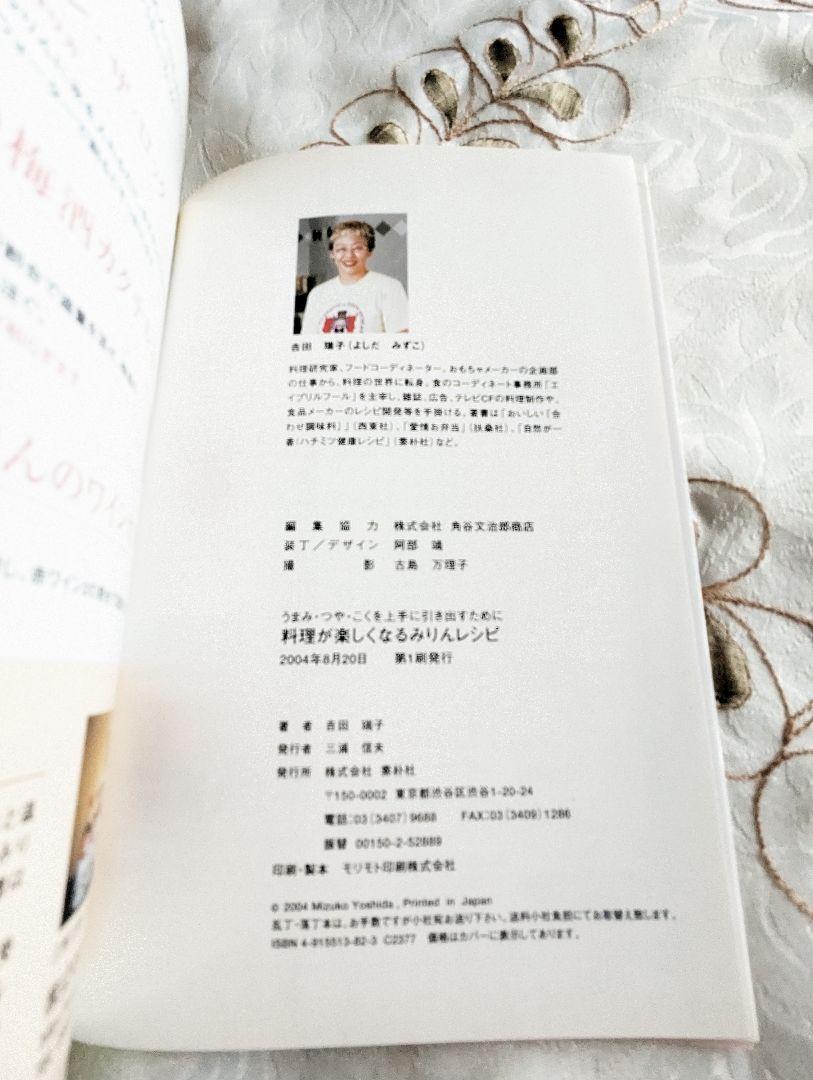 梅酒カクテ
んのワイン
吉田 瑞子(よしだ みずこ)
料理研究家、フードコーディネーター。おもちゃメーカーの企画部
の仕事から、料理の世界に転身。食のコーディネート事務所「エ
イプリルフール」を主宰し、雑誌、広告、テレビCFの料理制作や、
食品メーカーのレシピ開発等を手掛ける。著書は「おいしい「合
わせ調味料」」(西東社)、「愛情お弁当」(扶桑社)、「自然が一
番(ハチミツ健康レシピ」(素朴社)など。
編集協力 株式会社 角谷文治郎商店
装丁/デザイン 阿部
撮影 古島 万理子
うまみ・つや・こくを上手に引き出すために
料理が楽しくなるみりんレシピ
2004年8月20日 第1刷発行
著者 吉田 瑞子
発行者 三浦 信夫
発行所 株式会社 素朴社
〒150-0002 東京都渋谷区渋谷1-20-24
電話:03(3407)9688 FAX:03(3409)1286
振替 00150-2-52889
印刷・製本 モリモト印刷株式会社
© 2004 Mizuko Yoshida, Printed in Japan
乱丁・落丁本は、お手数ですが小社宛お送り下さい。送料小社負担にてお取替え致します。
ISBN 4-915513-82-3 C2377 価格はカバーに表示してあります。